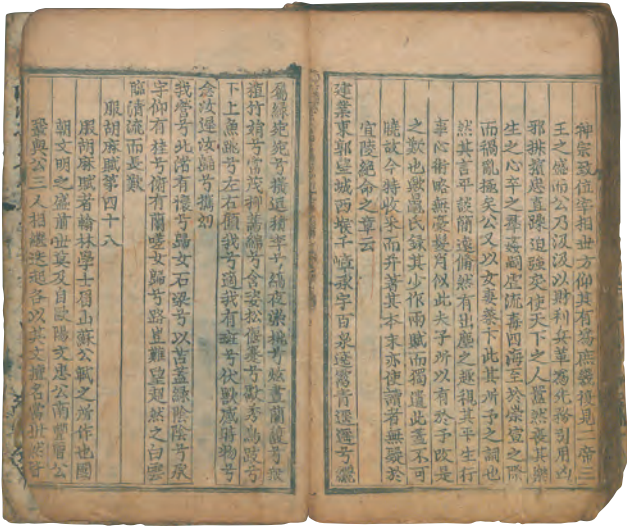 神宗致位宰相世方仰其有為庶幾復見二帝三
王之盛而公乃汲汲以財利兵革為先務引用凶
邪排擯忠直躁迫強戾使天下之人囂然喪其樂
生之心卒之羣姦嗣虐流毒四海至於崇宣之際
而禍亂極矣公又以女妻蔡卞此其所予之詞也
然其言平淡簡遠翛然有出塵之趣視其平生行
事心術略無毫髮肖似此夫子所以有於予改是
之歎也歟晁氏錄其少作兩賦而獨遺此蓋不可
曉故今特收采而并著其本末亦使讀者無疑於
宜陵絕命之章云
建業東郭望城西堠千嶂承宇百泉遶霤青遙遙兮纚
屬綠宛宛兮橫逗積李兮縞夜崇桃兮炫晝蘭馥兮衆
植竹娟兮常茂柳蔫綿兮含姿松偃蹇兮獻秀鳥跂兮
下上魚跳兮左右顧我兮適我有斑兮伏獸感時物兮
念汝遲汝歸兮攜幼
我營兮北渚有懷兮歸女石梁兮以苫蓋綠陰陰兮承
宇仰有桂兮俯有蘭嗟女歸兮路豈難望超然之白雲
臨清流而長歎
服胡麻賦第四十八
服胡麻賦者翰林學士眉山蘇公軾之所作也國
朝文明之盛前世莫及自歐陽文忠公南豐曾公
鞏與公三人相繼迭起各以其文擅名當世然皆